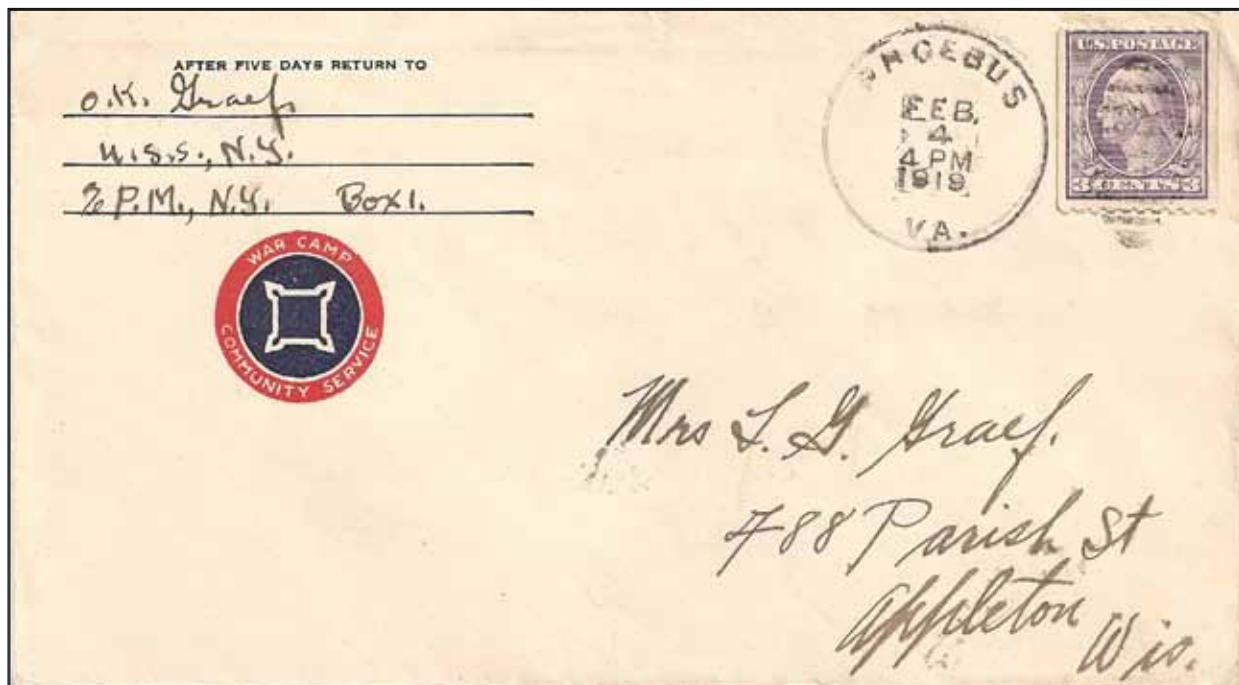 AFTER FIVE DAYS RETURN TO
O.K. Graef
U.S.S., N.Y.
% P.M., N.Y. Box 1.
WAR CAMP
COMMUNITY SERVICE
PHOEBUS
FEB.
4
4 PM
1919
VA.
U.S. POSTAGE
3 CENTS 3
Mrs L. G. Graef.
788 Parish St
Appleton
Wis.